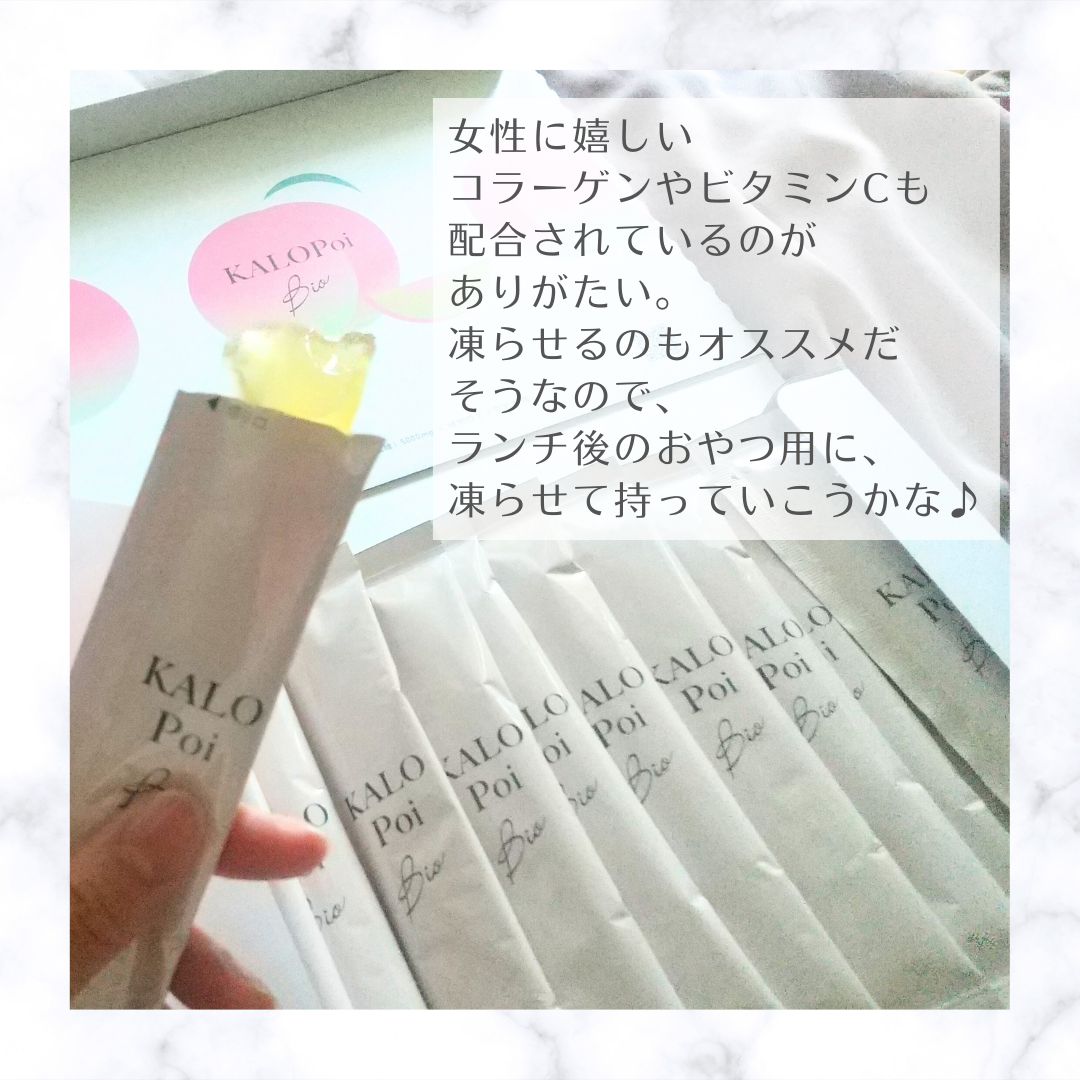 女性に嬉しい
コラーゲンやビタミンCも
配合されているのが
ありがたい。
凍らせるのもオススメだ
そうなので、
ランチ後のおやつ用に、
凍らせて持っていこうかな♪
KALOPoi
Bio
KALO
Poi
KALO
Poi
Bio
KALO
Poi
Bio
LO
oi
Bio
ALO
Poi
Bio
KALO
Poi
Bio
ALO
Poi
Bio
LO
i
o
O
Bio
KAL
Po